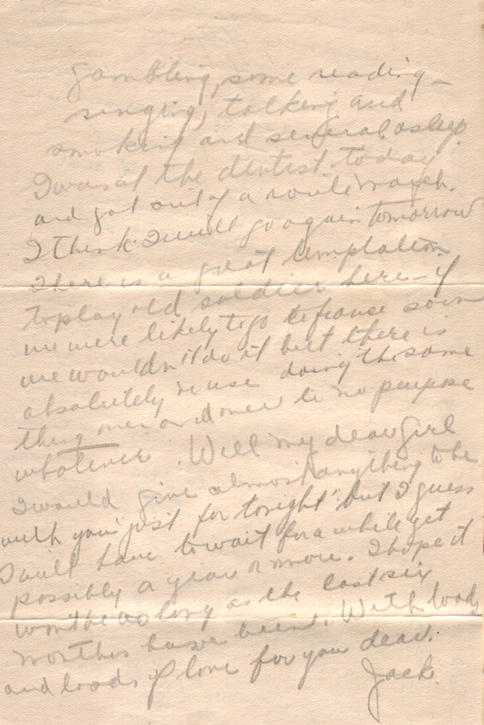 gambling, some reading -
singing, talking and
smoking and several asleep
I was at the dentist today
and got out of a route march.
I think I will go again tomorrow
There is a great temptation
to play old soldier here - if
we were likely to go to France soon
we wouldn't do it but there is
absolutely no use doing the same
thing over and over to no purpose
whatever. Well my dear girl
I would give almost anything to be
with you "just for tonight" but I guess
I will have to wait for a while yet
possibly a year or more. I hope it
won't be as long as the last six
months have been. With loads
and loads of love for you dear.
Jack.